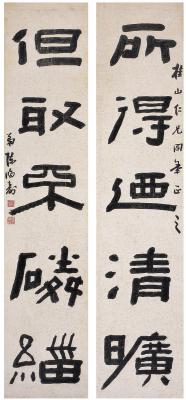 桂山仁兄同年正之
所得迺清曠
但取不磷緇
陳鴻壽